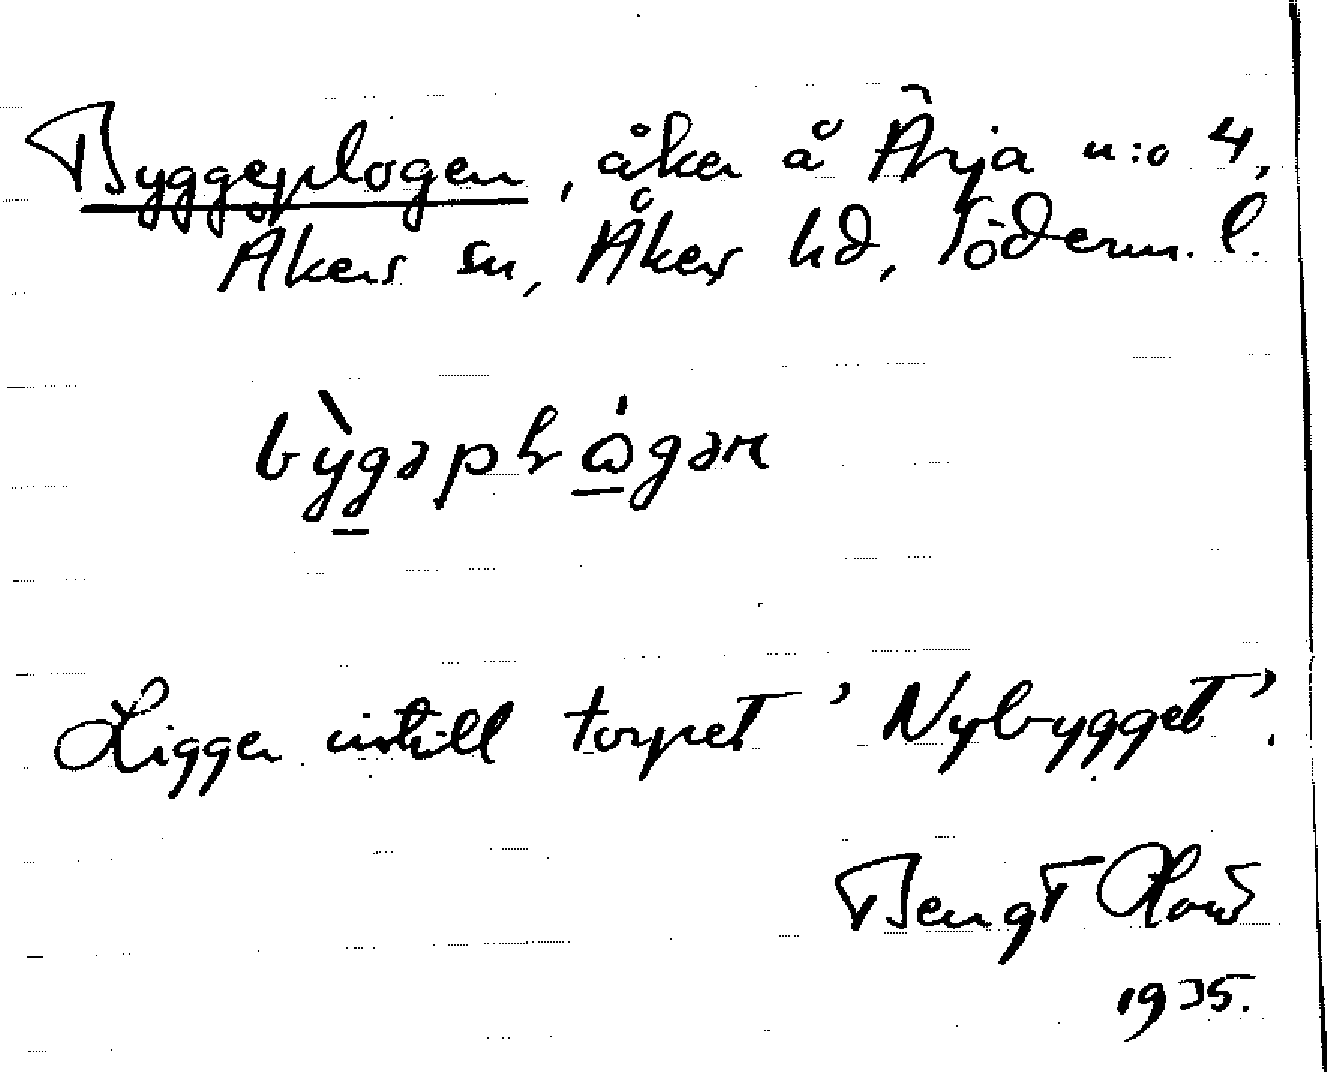 Byggeplogen, åker å Ärja n:o 4,
Åkers sn, Åkers hd, Söderm. l.
bỳgəplɷ́gən
Ligger intill torpet 'Nybygget'.
Bengt
1935.